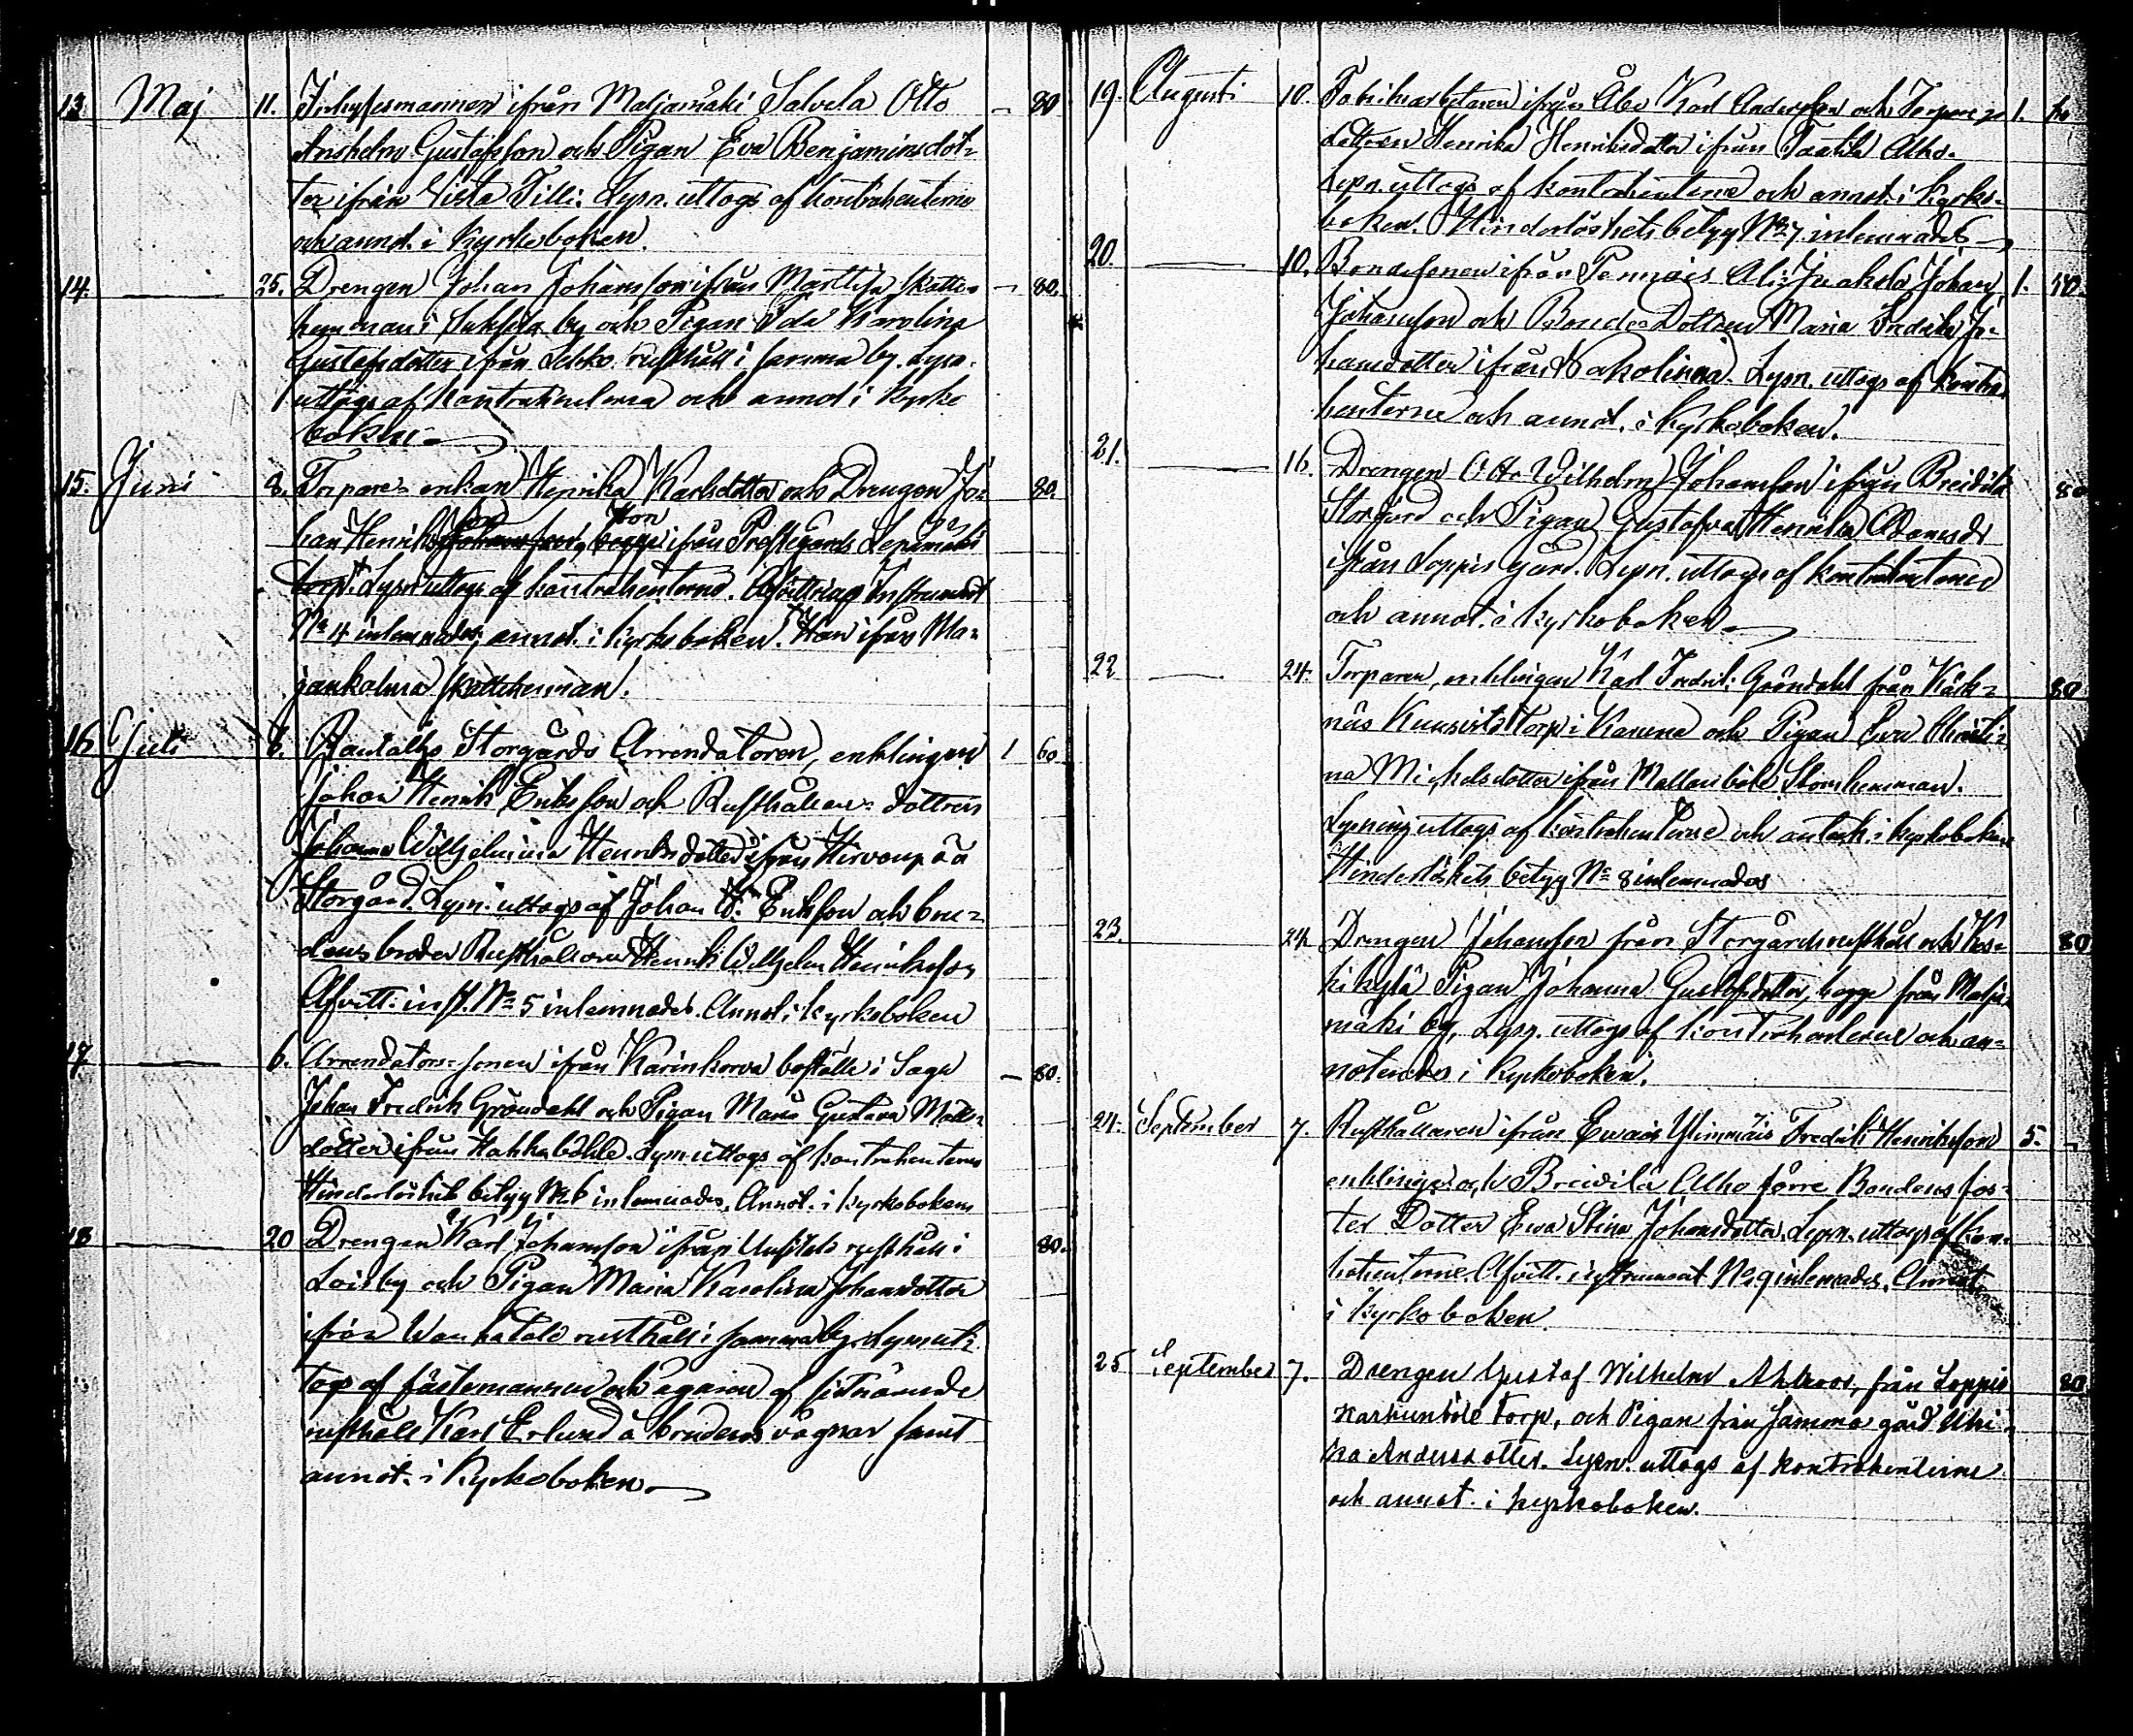 13. Maj 11. Inhysesmannen ifrån Maljamäki Salvela Otto — 80
Anshelm Gustafsson och Pigan Eva Benjaminsdot-
ter ifrån Sista Tilli. Lysn. uttogs af kontrahenterne
och annot. i Kyrkoboken.
14. — 25. Drengen Johan Johansson ifrån Marttila skatte- — 80.
hemman i by och Pigan Ida Karolina
Gustafsdotter ifrån rusthåll i samma by. Lysn.
uttogs af kontrahenterna och annot i Kyrko
boken
15. Juni 8. Torpare-enkan Henrika Karlsdotter och Drengen Jo- 80.
han Henrik ifrån Prestgårds Lepimäki
torp. Lysn uttogs af kontrahenterne. Afvittrings Instrument
No 4 inlemnades; annot. i kyrkoboken. Han ifrån Ma-
jankolma skattehemman.
16. Juli 6. Storgårds Arrendatoren, enklingen 1 60
Johan Henrik Eriksson och Rusthållare-dottren
Johanna Wilhelmina Henriksdotter ifrån Hirvonpää
Storgård. Lysn. uttogs af Johan H. Eriksson och bru-
dens broder Rusthållaren Henrik Wilhelm Henriksson
Afvitt. inst. No 5 inlemnades. Annot. i kyrkoboken
17 — 6. Arrendators-sonen ifrån Karinkorva boställe i Sagu — 80.
Johan Fredrik Gröndahl och Pigan Maria Gustava Matts-
dotter ifrån Hakkaböhle. Lysn uttogs af kontrahenterne
Hinderlöshets betyg No 6 inlemnades. Annot. i kyrkoboken
18 — 20 Drengen Karl Johansson ifrån Uusitalo rusthåll i 80.
Lois by och Pigan Maria Karolina Johansdotter
ifrån Wanhatalo rusthåll i samma by. Lysn ut-
togs af fästemannen och ägaren af sistnämnde
rusthåll Karl Erlund å brudens vägnar samt
annot. i Kyrkoboken
19. Augusti 10. Fabriksarbetaren ifrån Åbo Karl Andersson och Torpare 1.
dottren Henrika Henriksdotter ifrån Taatila Alho.
Lysn. uttogs af kontrahenterne och annot. i Kyrko-
boken. Hinderlöshets betyg No 7 inlemnades
20. — 10. Bondesonen ifrån Pennais Ali-Juakola Johan 1.
Johansson och Bonde Dottren Maria Fredrika Jo-
hansdotter ifrån Nakolinna. Lysn. uttogs af kontra-
henterne och annot. i Kyrkoboken.
21. — 16. Drengen Otto Wilhelm Johansson ifrån Breidila 80
Storgård och Pigan Gustafva Henrika Adamsdr
ifrån Loppis gård. Lysn. uttogs af kontrahenterne
och annot. i kyrkoboken
22 — 24. Torparen, enklingen Karl Fredrik Gröndahl från Käck- 80
näs Kuusisto torp i Karuna och Pigan Eva Christi-
na Michelsdotter ifrån Mattasböle Stomhemman.
Lysning uttogs af kontrahenterne och anteck. i kyrkoboken
Hinderlöshets betyg No 8 inlemnades
23. 24 Drengen Johansson från Storgårds rusthåll och Kos- 80
kikylä Pigan Johanna Gustafsdotter, begge från Malja-
mäki by, Lysn. uttogs af kontrahenterne och an-
notendes i Kyrkoboken.
24. September 7. Rusthållaren ifrån Ewais Ylimmäis Fredrik Henriksson 5. —
enklingen och Breidila Alho förre Bondens fos-
ter Dotter Ewa Stina Johansdotter. Lysn. uttogs af kon-
trahenterne. Afvitt. instrument No 9 inlemnades. Annot
i kyrkoboken
25 September 7. Drengen Gustaf Wilhelm Ahlroos, från Loppis 80
Karhunböle torp, och Pigan från samma gård Ulri-
ka Andersdotter. Lysn. uttogs af kontrahenterne
och annot. i kyrkoboken.